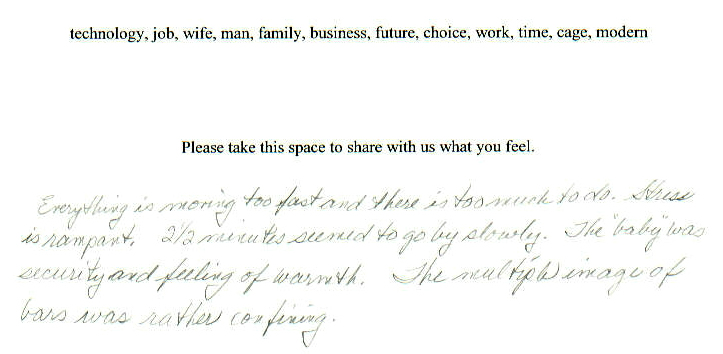 technology, job, wife, man, family, business, future, choice, work, time, cage, modern
Please take this space to share with us what you feel.
Everything is moving too fast and there is too much to do. Stress
is rampant. 2½ minutes seemed to go by slowly. The "baby" was
security and feeling of warmth. The multiple image of
bars was rather confining.